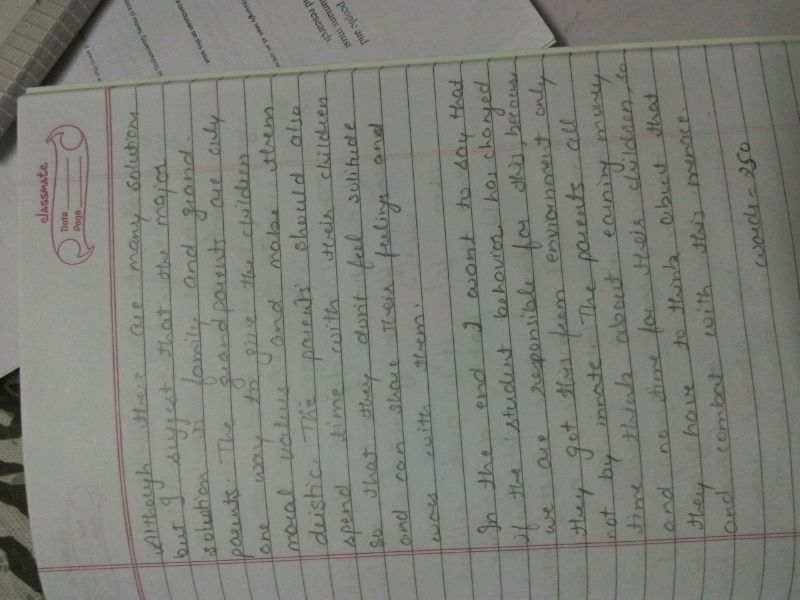 classmate
Date
Page
Although there are many solution
but I suggest that the major
solution is family and grand.
parents. The grandparents are only
one way to give the children
moral values and make them
deistic. The parents should also
spend time with their children
so that they don't feel solitude
and can share their feelings and
with them.
In the end I want to say that
if the student behavior has changed
we are responsible for this, because
they got this from environment only
not by innate. The parents all
time think about earning money
and no time for their children, so
they have to think about that
and combat with this menace.
words = 250
people and
humans must
nd research